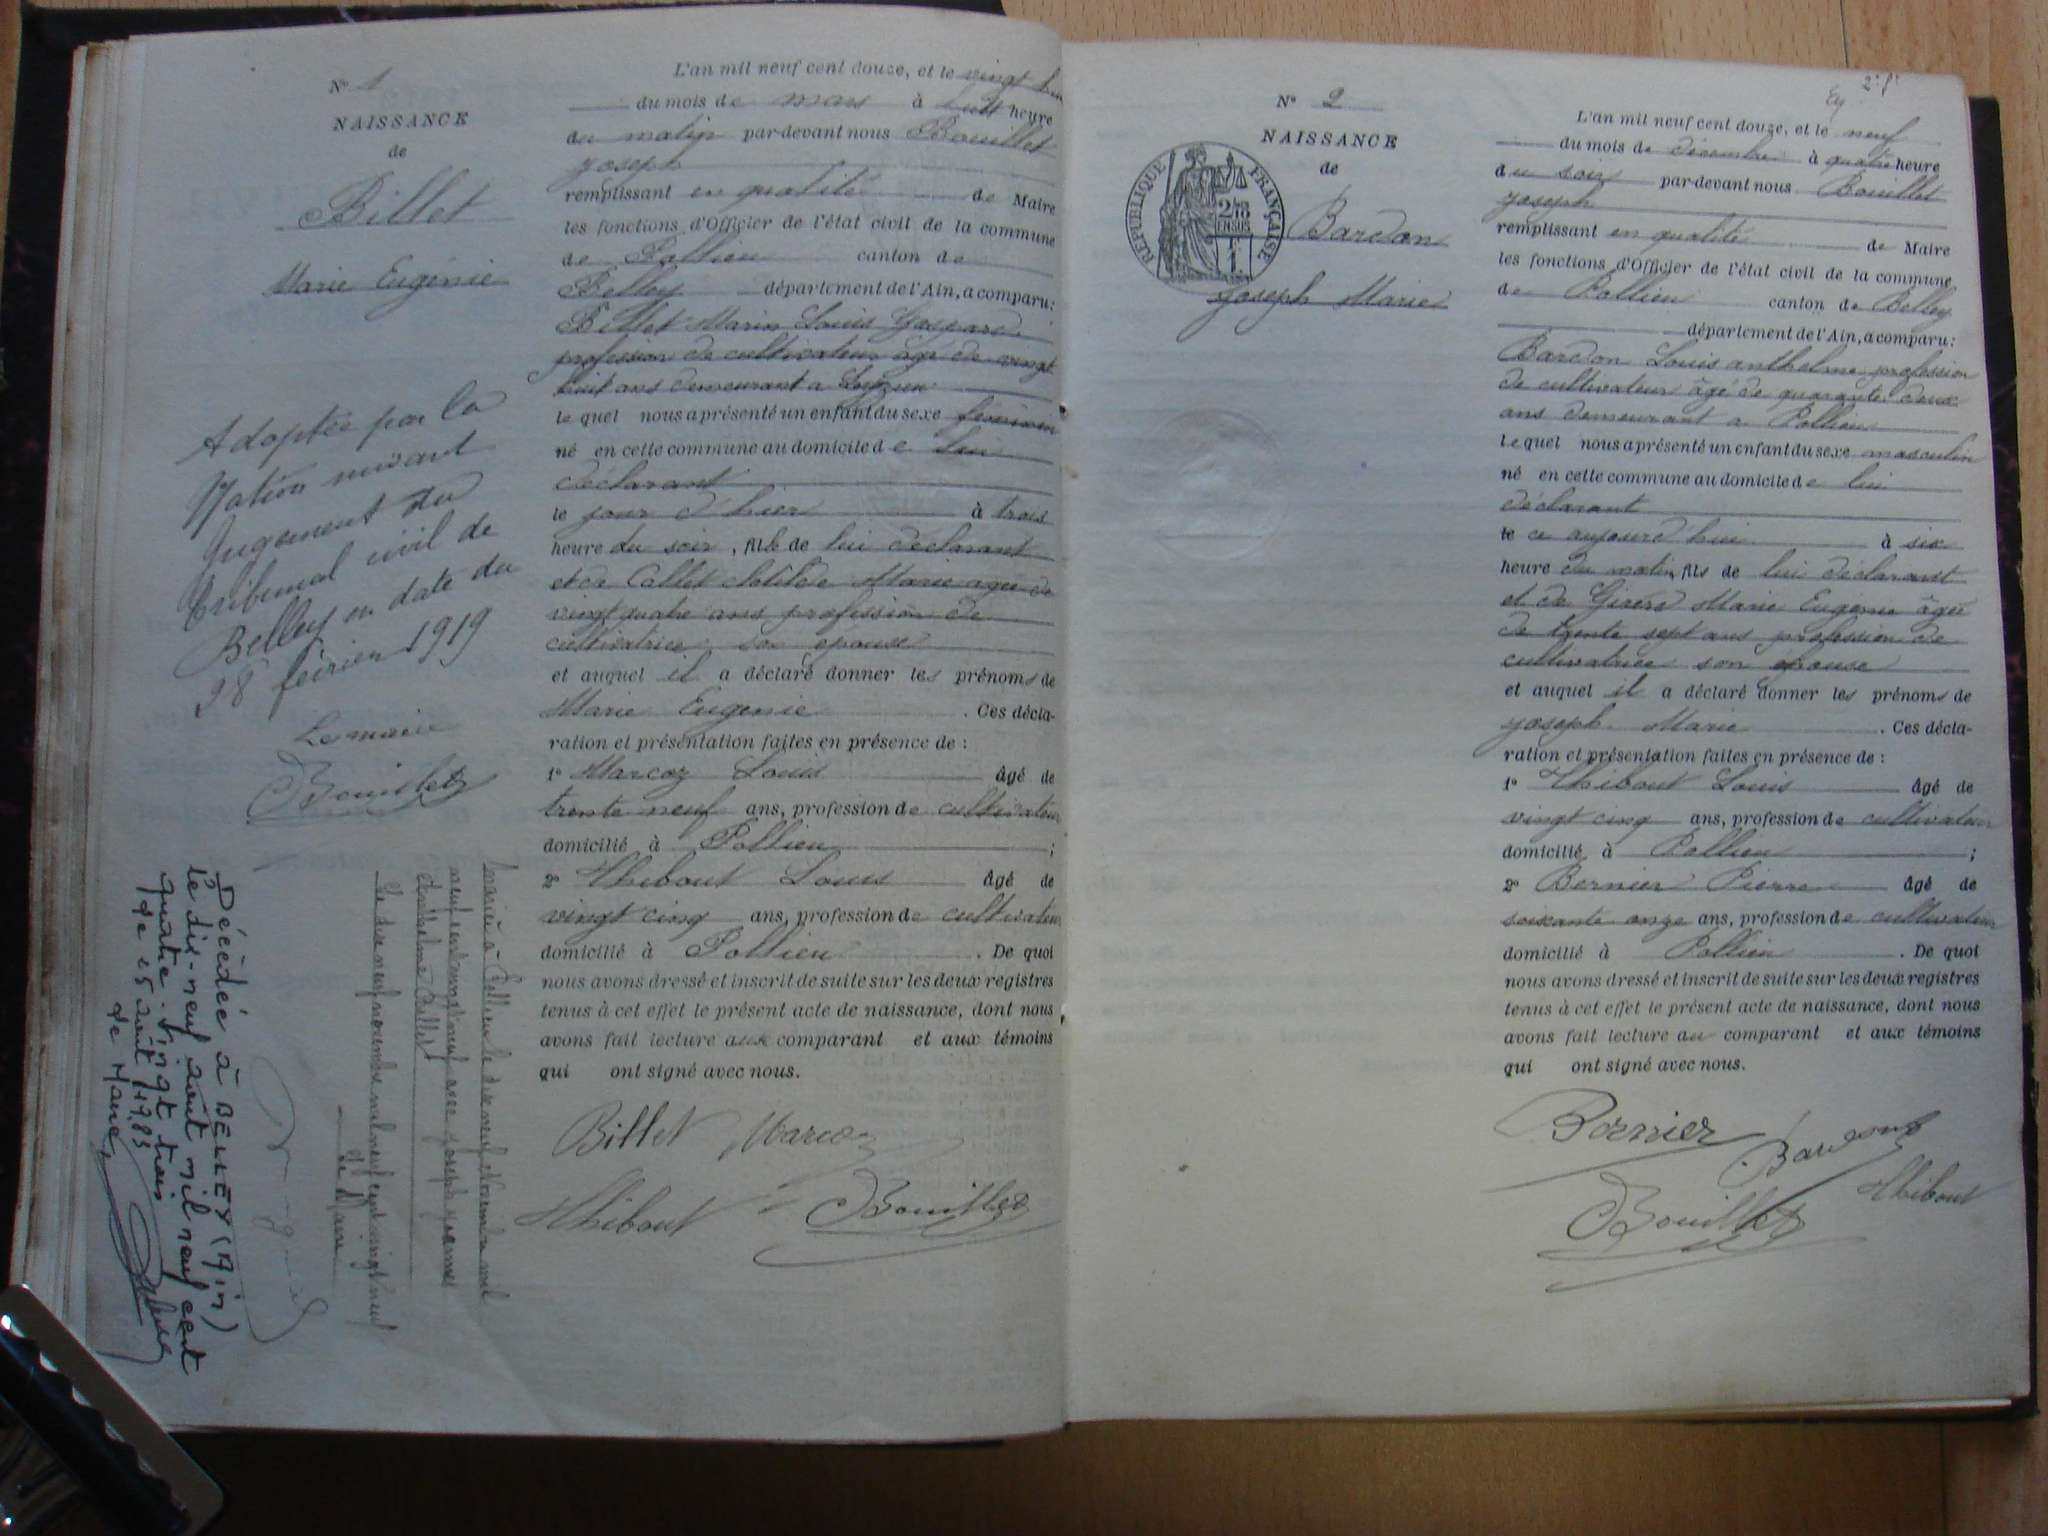 N° 1
NAISSANCE
de
Billet
Marie Eugénie
Adoptée par la
Nation suivant
Jugement du
tribunal civil de
Belley en date du
28 février 1919
Le maire
Bouillet
Marié à Pollieu le dix neuf novembre mil
neuf cent vingt neuf avec Joseph
Anthelme Callet
Le dix neuf novembre mil neuf cent vingt neuf
Le Maire
Décédée à BELLEY (Ain)
le dix-neuf août mil neuf cent
quatre-vingt trois
le 25 août 1983
Le Maire,
L'an mil neuf cent douze, et le vingt
du mois de mars à huit heure
du matin par-devant nous Bouillet
Joseph
remplissant en qualité de Maire
les fonctions d'Officier de l'état civil de la commune
de Pollieu canton de
Belley département de l'Ain, a comparu:
Billet Marin Louis Gaspard
profession de cultivateur âgé de vingt
huit ans demeurant a
le quel nous a présenté un enfant du sexe féminin
né en cette commune au domicile de lui
déclarant
le jour d'hier à trois
heure du soir, fille de lui déclarant
et de Callet Clotilde Marie agée de
vingt quatre ans profession de
cultivatrice son épouse
et auquel il a déclaré donner les prénoms de
Marie Eugénie. Ces décla-
ration et présentation faites en présence de :
1° Marcoz Louis âgé de
trente neuf ans, profession de cultivateur
domicilié à Pollieu ;
2° Thibout Louis âgé de
vingt cinq ans, profession de cultivateur
domicilié à Pollieu. De quoi
nous avons dressé et inscrit de suite sur les deux registres
tenus à cet effet le présent acte de naissance, dont nous
avons fait lecture aux comparant et aux témoins
qui ont signé avec nous.
Billet Marcoz
Thibout Bouillet
N° 2
NAISSANCE
de
RÉPUBLIQUE FRANÇAISE
2/10
EN SUS
1 F.
Bardon
Joseph Marie
L'an mil neuf cent douze, et le neuf
du mois de décembre à quatre heure
du soir par-devant nous Bouillet
Joseph
remplissant en qualité de Maire
les fonctions d'Officier de l'état civil de la commune
de Pollieu canton de Belley
département de l'Ain, a comparu:
Bardon Louis anthelme profession
de cultivateur âgé de quarante deux
ans demeurant a Pollieu
le quel nous a présenté un enfant du sexe masculin
né en cette commune au domicile de lui
déclarant
le ce aujourd'hui à six
heure du matin, fils de lui déclarant
et de Girerd Marie Eugénie âgée
de trente sept ans profession de
cultivatrice son épouse
et auquel il a déclaré donner les prénoms de
Joseph Marie. Ces décla-
ration et présentation faites en présence de :
1° Thibout Louis âgé de
vingt cinq ans, profession de cultivateur
domicilié à Pollieu ;
2° Bernier Pierre âgé de
soixante onze ans, profession de cultivateur
domicilié à Pollieu. De quoi
nous avons dressé et inscrit de suite sur les deux registres
tenus à cet effet le présent acte de naissance, dont nous
avons fait lecture au comparant et aux témoins
qui ont signé avec nous.
Bernier
Bardon
Thibout
Bouillet